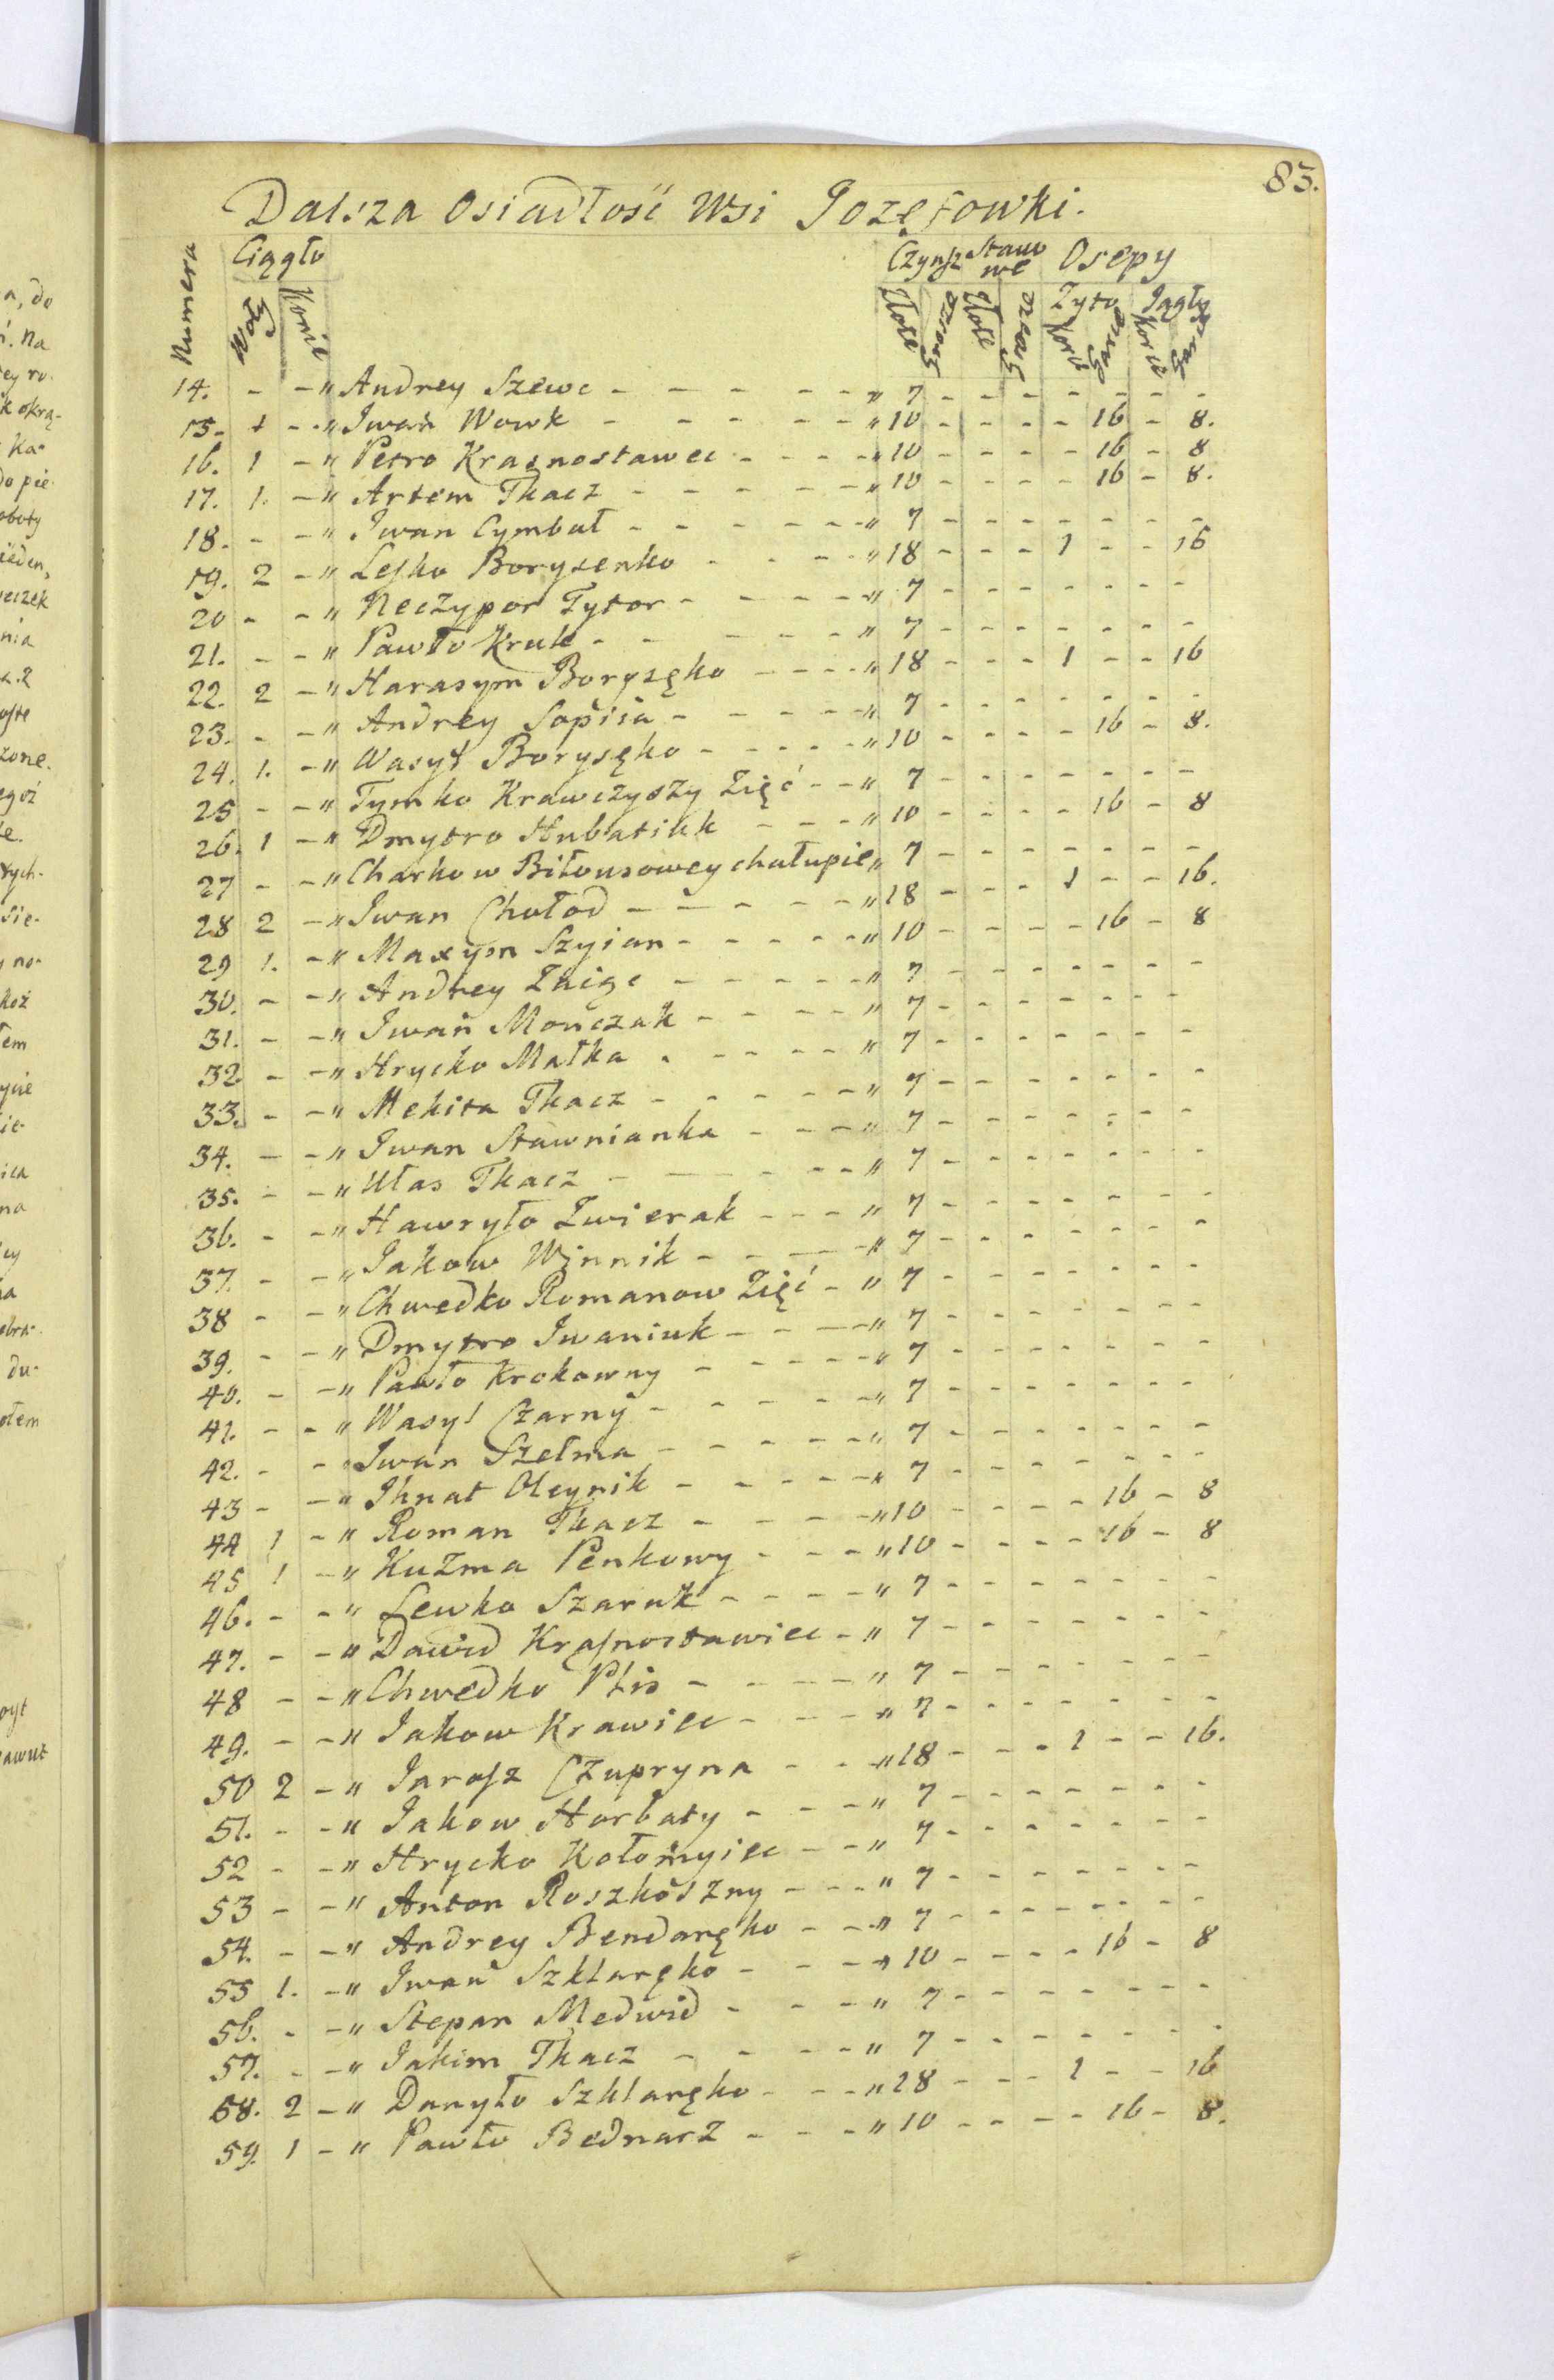 83.
Dalsza Osiadłość Wsi Jozefowki.
Numera Ciągło Czynsz Stawowe Osepy
Konie Złote Grosze Złote Grosze Zyto Jagły
Korce Garce Korce Garce
14. - - " Andrey Szewc - - - - - " 7 - - - - - - -
15. 1 - " Iwan Wowk - - - - - " 10 - - - - 16 - 8.
16. 1 - " Petro Krasnostawec - - - - " 10 - - - - 16 - 8
17. 1. - " Artem Tkacz - - - - - " 10 - - - - 16 - 8.
18. - - " Iwan Cymbał - - - - - " 7 - - - - - - -
19. 2 - " Lesko Borysenko - - - - " 18 - - - 1 - - 16
20 - - " Neczypor Tytor - - - - " 7 - - - - - - -
21. - - " Pawło Kruk - - - - - " 7 - - - - - - -
22. 2 - " Harasym Boryszęko - - - - " 18 - - - 1 - - 16
23. - - " Andrey Sopiia - - - - " 7 - - - - - - -
24. 1. - " Wasyl Borysęko - - - - " 10 - - - - 16 - 8.
25 - - " Tymko Krawczyszy Zięć - - " 7 - - - - - - -
26. 1 - " Dmytro Hubatiuk - - - " 10 - - - - 16 - 8
27 - - " Charko w Biłousowey chałupie " 7 - - - - - - -
28 2 - " Iwan Chołod - - - - - " 18 - - - 1 - - 16.
29 1. - " Maxym Szyian - - - - - " 10 - - - - 16 - 8
30. - - " Andrey Zaigc - - - - - " 7 - - - - - - -
31. - - " Iwan Mończak - - - - " 7 - - - - - - -
32 - - " Hrycko Małka - - - - - " 7 - - - - - - -
33. - - " Mekita Tkacz - - - - - " 7 - - - - - - -
34. - - " Iwan Stawnianka - - - - " 7 - - - - - - -
35. - - " Ułas Tkacz - - - - - " 7 - - - - - - -
36. - - " Hawryło Zwierak - - - " 7 - - - - - - -
37. - - " Jakow Winnik - - - - " 7 - - - - - - -
38 - - " Chwedko Romanow Zięć - " 7 - - - - - - -
39. - - " Dmytro Iwaniuk - - - " 7 - - - - - - -
40. - - " Pawło Krokowny - - - - " 7 - - - - - - -
41. - - " Wasyl Czarny - - - - - " 7 - - - - - - -
42. - - " Iwan Szelma - - - - - " 7 - - - - - - -
43 - - " Ihnat Oleynik - - - - - " 7 - - - - - - -
44 1 - " Roman Tkacz - - - - " 10 - - - - 16 - 8
45 1 - " Kuzma Penkowy - - - " 10 - - - - 16 - 8
46. - - " Lewko Szaruk - - - - " 7 - - - - - - -
47. - - " Dawid Krasnostawiec - " 7 - - - - - - -
48 - - " Chwedko Ptis - - - - " 7 - - - - - - -
49. - - " Jakow Krawiec - - - " 7 - - - - - - -
50 2 - " Jarosz Czupryna - - " 18 - - - 1 - - 16.
51. - - " Jakow Horbaty - - - " 7 - - - - - - -
52 - - " Hrycko Kołomyiec - - " 7 - - - - - - -
53 - - " Anton Roszkoszny - - - " 7 - - - - - - -
54. - - " Andrey Bendaręko - - " 7 - - - - - - -
55 1. - " Iwan Szklaręko - - - " 10 - - - - 16 - 8
56. - - " Stepan Medwid - - - " 7 - - - - - - -
57. - - " Jakim Tkacz - - - - " 7 - - - - - - -
58. 2 - " Daryło Szklaręko - - - " 18 - - - 1 - - 16
59. 1 - " Pawło Bednarz - - - " 10 - - - - 16 - 8.